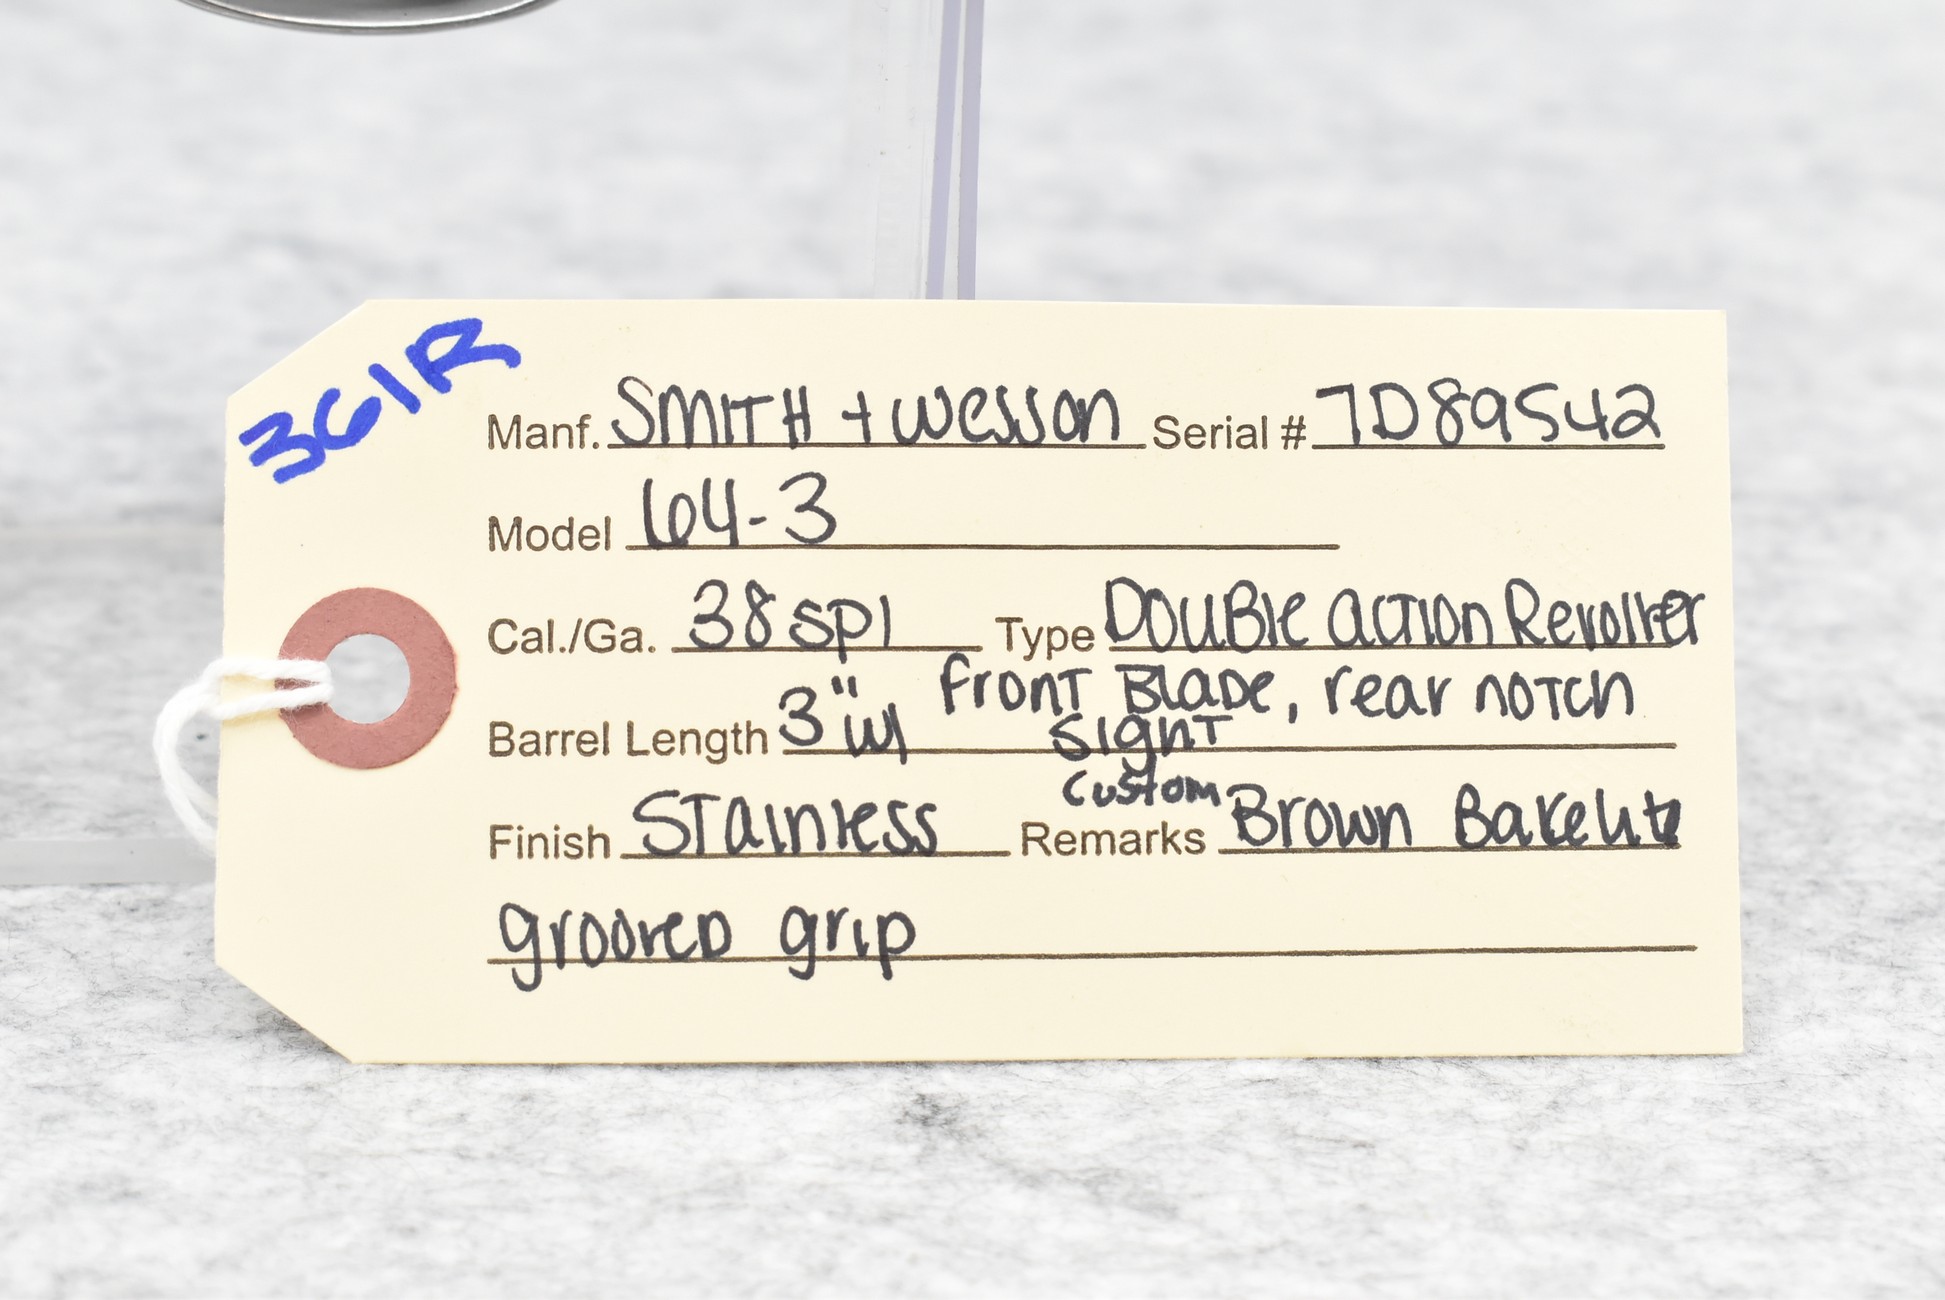 361R
Manf. SMITH + Wesson Serial # 7D89542
Model 64-3
Cal./Ga. 38 spl Type Double Action Revolver
Front Blade, rear notch
Barrel Length 3" w/ sight
Custom
Finish Stainless Remarks Brown Bakelite
grooved grip